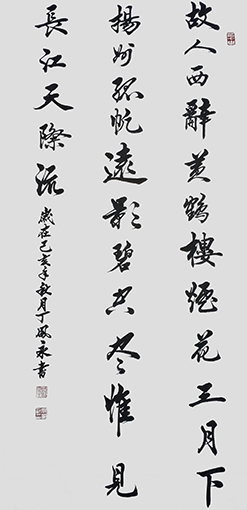 故人西辭黃鶴樓煙花三月下
揚州孤帆遠影碧空尽惟見
長江天際流
歲在己亥年秋月丁書